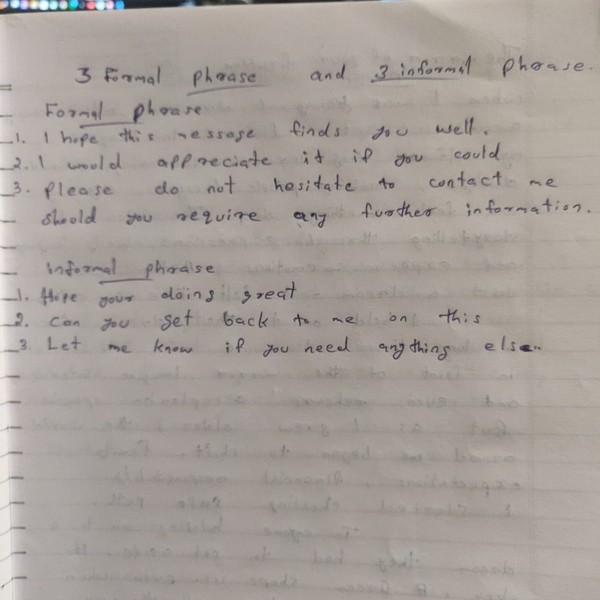 3 Formal phrase and 3 informal phrase.
Formal phrase
1. I hope this message finds you well.
2. I would appreciate it if you could
3. Please do not hesitate to contact me
should you require any further information.
informal phraise
1. Hope your doing great
2. Can you get back to me on this
3. Let me know if you need anything else..